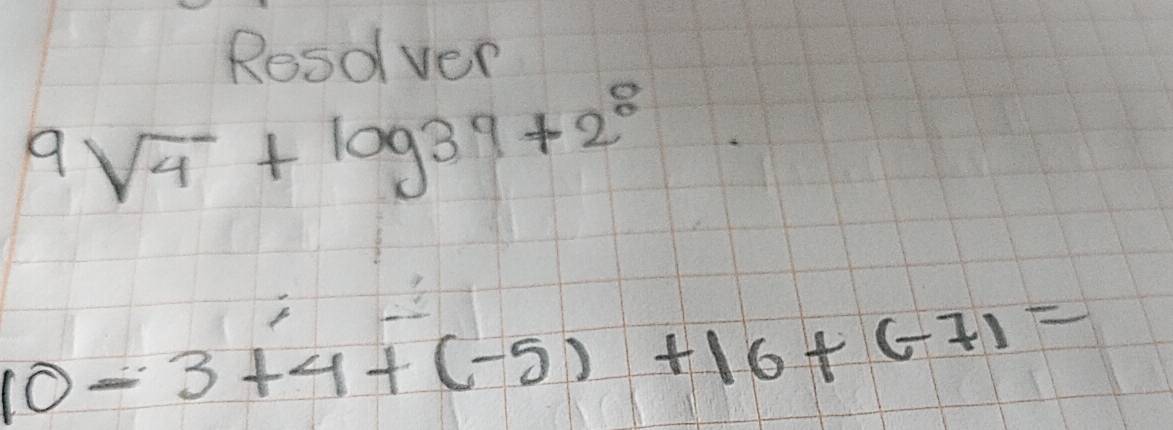 Resolver
9√4 + log39 + 2⁸
10 - 3 + 4 + (-5) + 16 + (-7) =